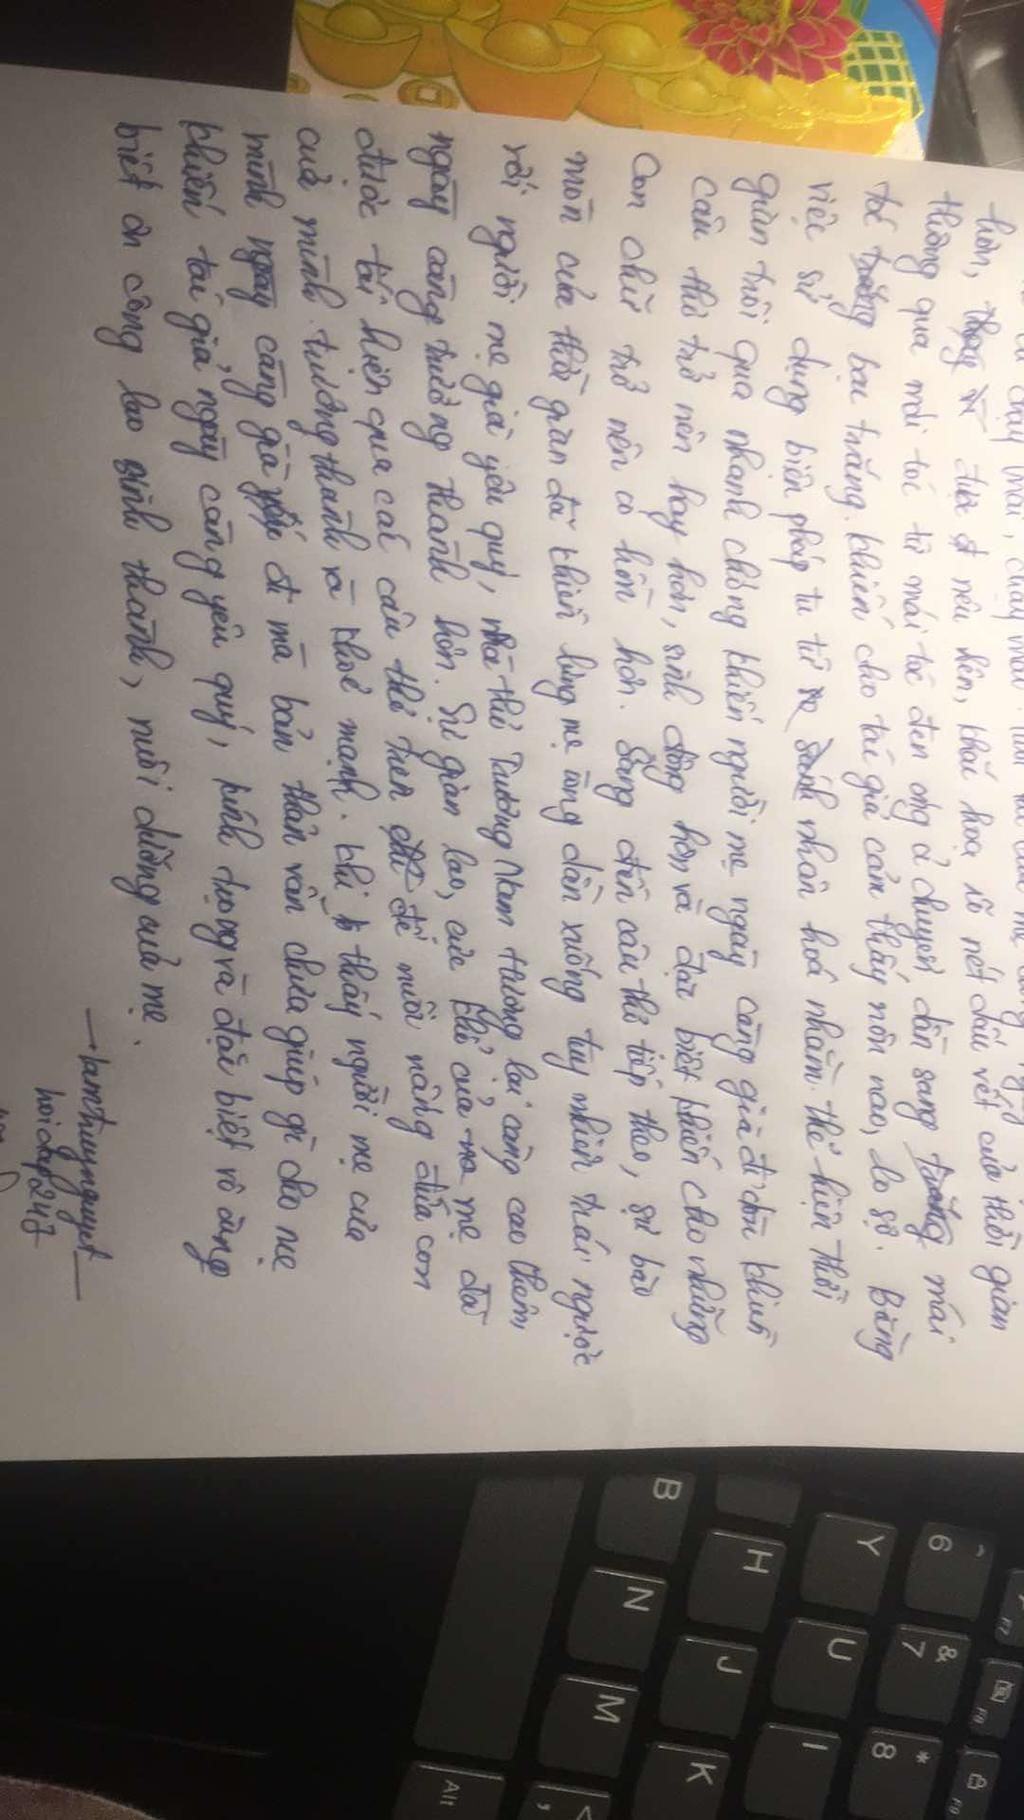 hơn, được nêu lên, khắc hoạ rõ nét dấu vết của thời gian
thông qua mái tóc từ mái tóc đen óng ả chuyển dần sang mái
tóc bạc trắng. khiến cho tác giả cảm thấy nôn nao, lo sợ. Bằng
việc sử dụng biện pháp tu từ nhân hoá nhằm thể hiện thời
gian trôi qua nhanh chóng khiến người mẹ ngày càng già đi còn khiến
câu thơ trở nên hay hơn, sinh động hơn và đặc biệt khiến cho những
con chữ trở nên có hồn hơn. Bỗng đến câu thơ tiếp theo, sự bào
mòn của thời gian đã khiến lưng mẹ còng dần xuống tuy nhiên trái ngược
với người mẹ già yêu quý, nhà thơ Trương Nam Hương lại càng cao thêm
ngày càng trưởng thành hơn. Sự gian lao, cửa khổ của mẹ đã
được tái hiện qua các câu thơ trên để nuôi nấng đứa con
của mình trưởng thành và khoẻ mạnh. khi thấy người mẹ của
mình ngày càng già đi mà bản thân vẫn chưa giúp gì cho mẹ
khiến tác giả ngày càng yêu quý, kính trọng và đặc biệt vô cùng
biết ơn công lao sinh thành, nuôi dưỡng của mẹ.
— lamthuynguyet —
hoidap247
B
N
M
H
J
K
Y
U
I
^
6
&
7
*
8
F7
F8
Alt
<
,